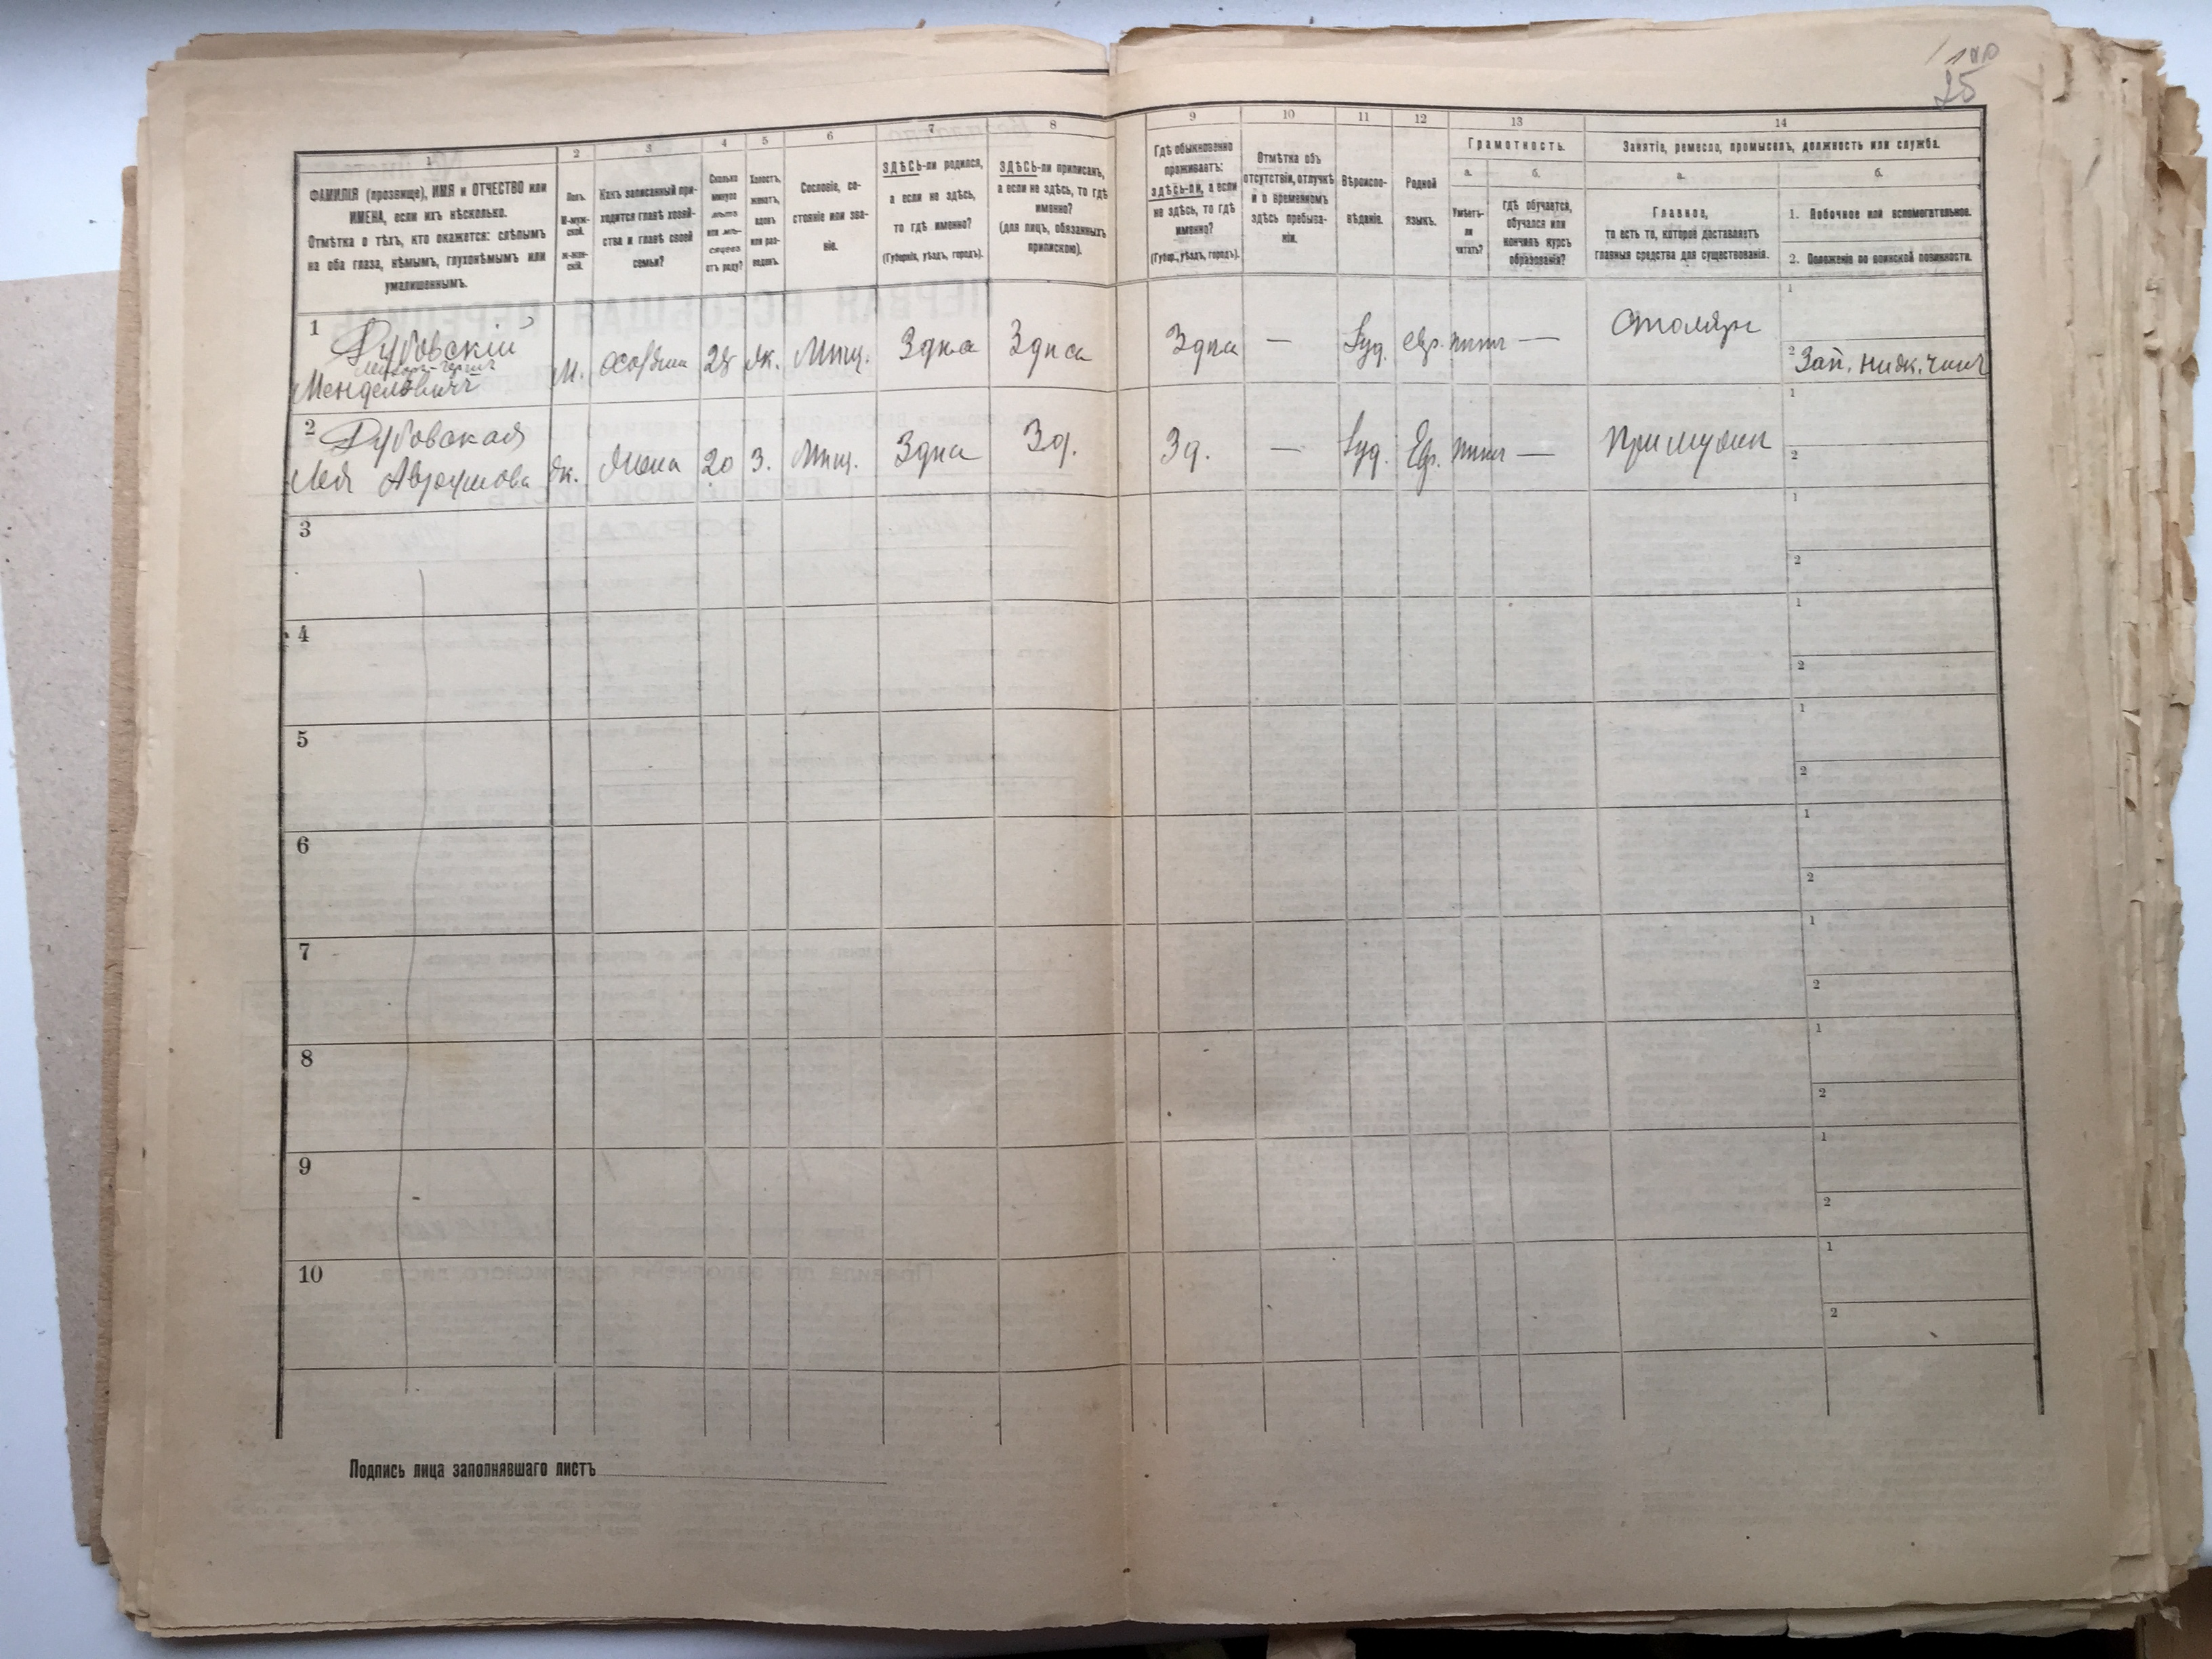 25
1
2
3
4
5
6
7
8
9
10
11
12
13
14
ФАМИЛІЯ (прозвище), ИМЯ и ОТЧЕСТВО или
ИМЕНА, если ихъ нѣсколько.
Отмѣтка о тѣхъ, кто окажется: слѣпымъ
на оба глаза, нѣмымъ, глухонѣмымъ или
умалишеннымъ.
Полъ.
М-муж-
ской.
ж-жен-
скій.
Какъ записанный при-
ходится главѣ хозяй-
ства и главѣ своей
семьи?
Сколько
минуло
лѣтъ
или мѣ-
сяцевъ
отъ роду?
Холостъ,
женатъ,
вдовъ
или раз-
веденъ.
Сословіе, со-
стояніе или зва-
ніе.
ЗДѢСЬ-ли родился,
а если не здѣсь,
то гдѣ именно?
(Губернія, уѣздъ, городъ).
ЗДѢСЬ-ли приписанъ,
а если не здѣсь, то гдѣ
именно?
(для лицъ, обязанныхъ
припискою).
Гдѣ обыкновенно
проживаетъ:
здѣсь-ли, а если
не здѣсь, то гдѣ
именно?
(Губер., уѣздъ, городъ).
Отмѣтка объ
отсутствіи, отлучкѣ
и о временномъ
здѣсь пребыва-
ніи.
Вѣроиспо-
вѣданіе.
Родной
языкъ.
Грамотность.
а.
Умѣетъ-
ли
читать?
б.
гдѣ обучается,
обучался или
кончилъ курсъ
образованія?
Занятіе, ремесло, промыселъ, должность или служба.
а.
Главное,
то есть то, которое доставляетъ
главныя средства для существованія.
б.
1. Побочное или вспомогательное.
2. Положеніе по воинской повинности.
1
Дубовскій
Менделовичъ
м. хозяин 28 ж. Мѣщ. Здѣсь Здѣсь Здѣсь — Іуд. евр. —
Столяръ
1
2 Зап. нижн. чинъ
2 Дубовская
Лея Аврумова
ж. жена 20 З. Мѣщ. Здѣсь Зд. Зд. — Іуд. Евр. —
При мужѣ
1
2
3
1
2
4
1
2
5
1
2
6
1
2
7
1
2
8
1
2
9
1
2
10
1
2
Подпись лица заполнявшаго листъ